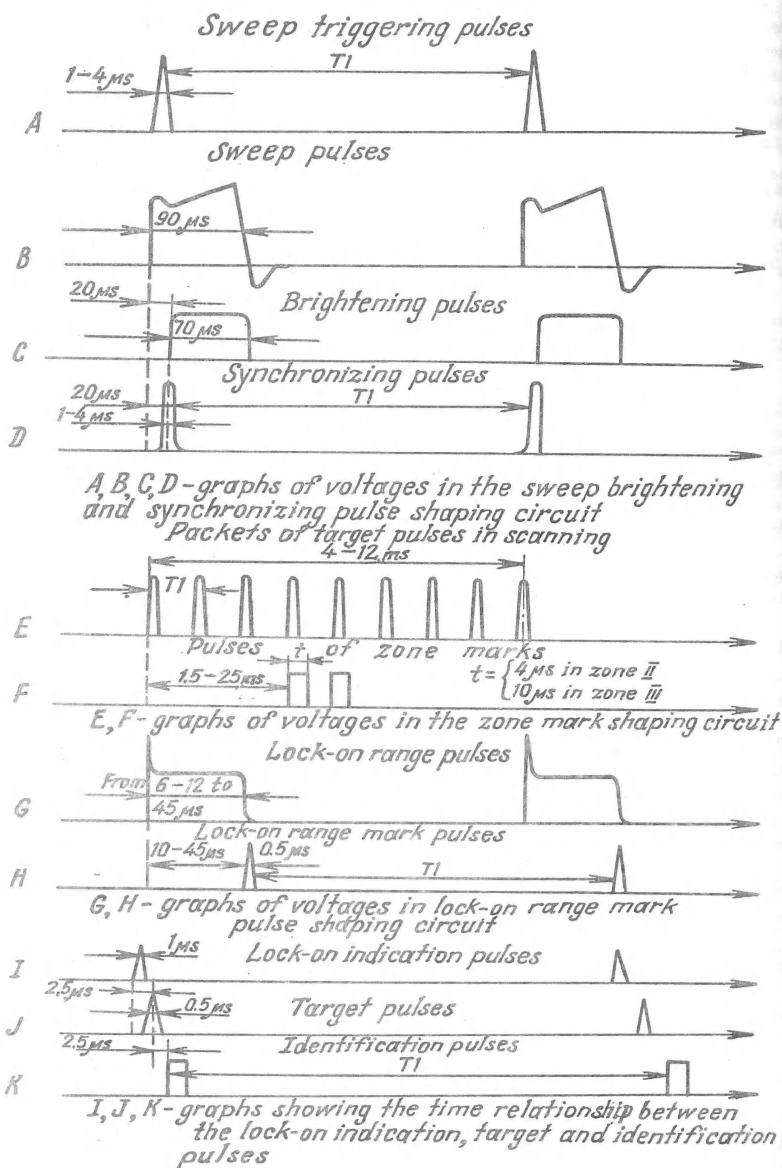 Sweep triggering pulses
T1
1-4μs
A
Sweep pulses
90μs
B
20μs
Brightening pulses
70μs
C
Synchronizing pulses
20μs
T1
1-4μs
D
A, B, C, D - graphs of voltages in the sweep brightening
and synchronizing pulse shaping circuit
Packets of target pulses in scanning
4-12ms
T1
E
Pulses t of zone marks
1.5-25ms
t = {4μs in zone II
10μs in zone III
F
E, F - graphs of voltages in the zone mark shaping circuit
Lock-on range pulses
From 6-12 to
45μs
G
Lock-on range mark pulses
10-45μs
0.5μs
T1
H
G, H - graphs of voltages in lock-on range mark
pulse shaping circuit
1μs
Lock-on indication pulses
I
2.5μs
Target pulses
0.5μs
J
Identification pulses
2.5μs
T1
K
I, J, K - graphs showing the time relationship between
the lock-on indication, target and identification
pulses